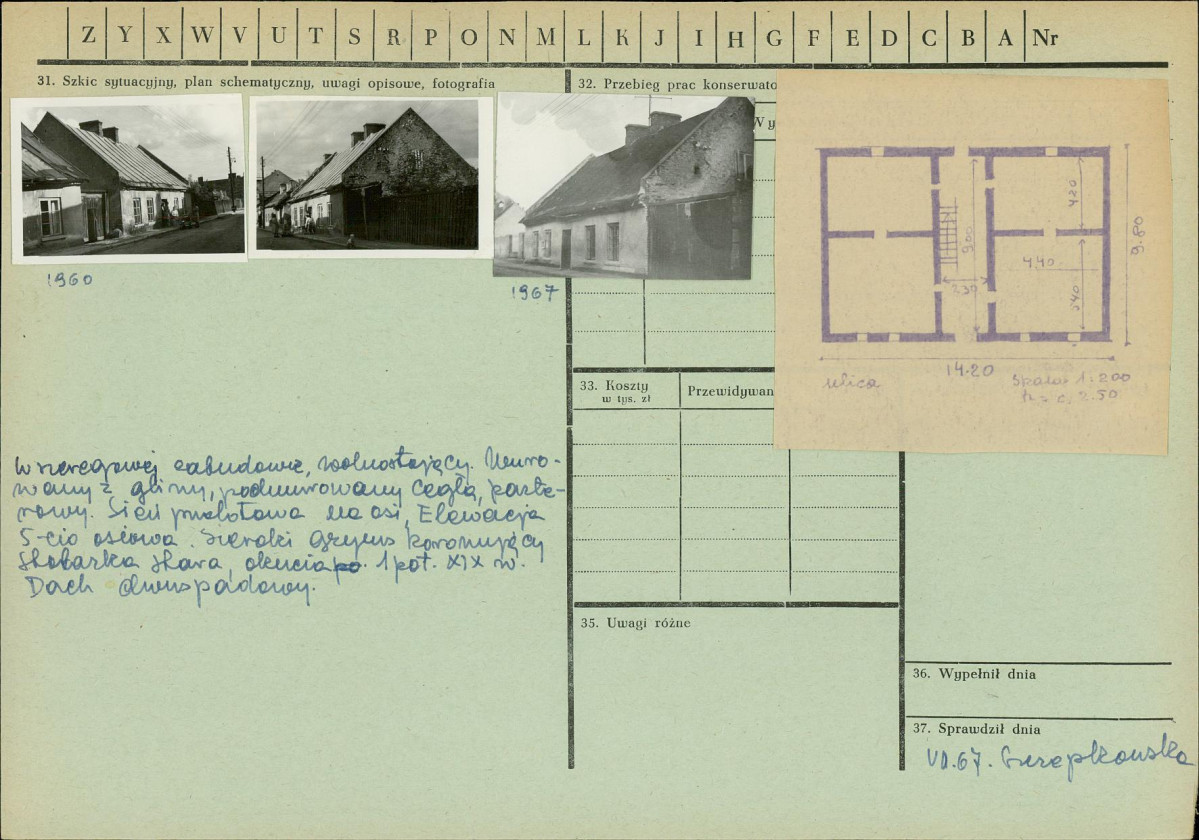 Z Y X W V U T S R P O N M L K J I H G F E D C B A Nr
31. Szkic sytuacyjny, plan schematyczny, uwagi opisowe, fotografia
32. Przebieg prac konserwato
Wy
1960
1967
4.20
9.80
9.00
4.40
2.30
5.40
14.20
ulica
Skala 1:200
h = c. 2.50
33. Koszty
w tys. zł
Przewidywan
W szeregowej zabudowie, wolnostojący. Muro-
wany z gliny, podmurowany cegłą, parte-
rowy. Sień przelotowa na osi, Elewacja
5-cio osiowa. Szeroki gzyms koronujący
Stolarka stara, okucia po. 1 poł. XIX w.
Dach dwuspadowy.
35. Uwagi różne
36. Wypełnił dnia
37. Sprawdził dnia
VII.67. Szrepkowska